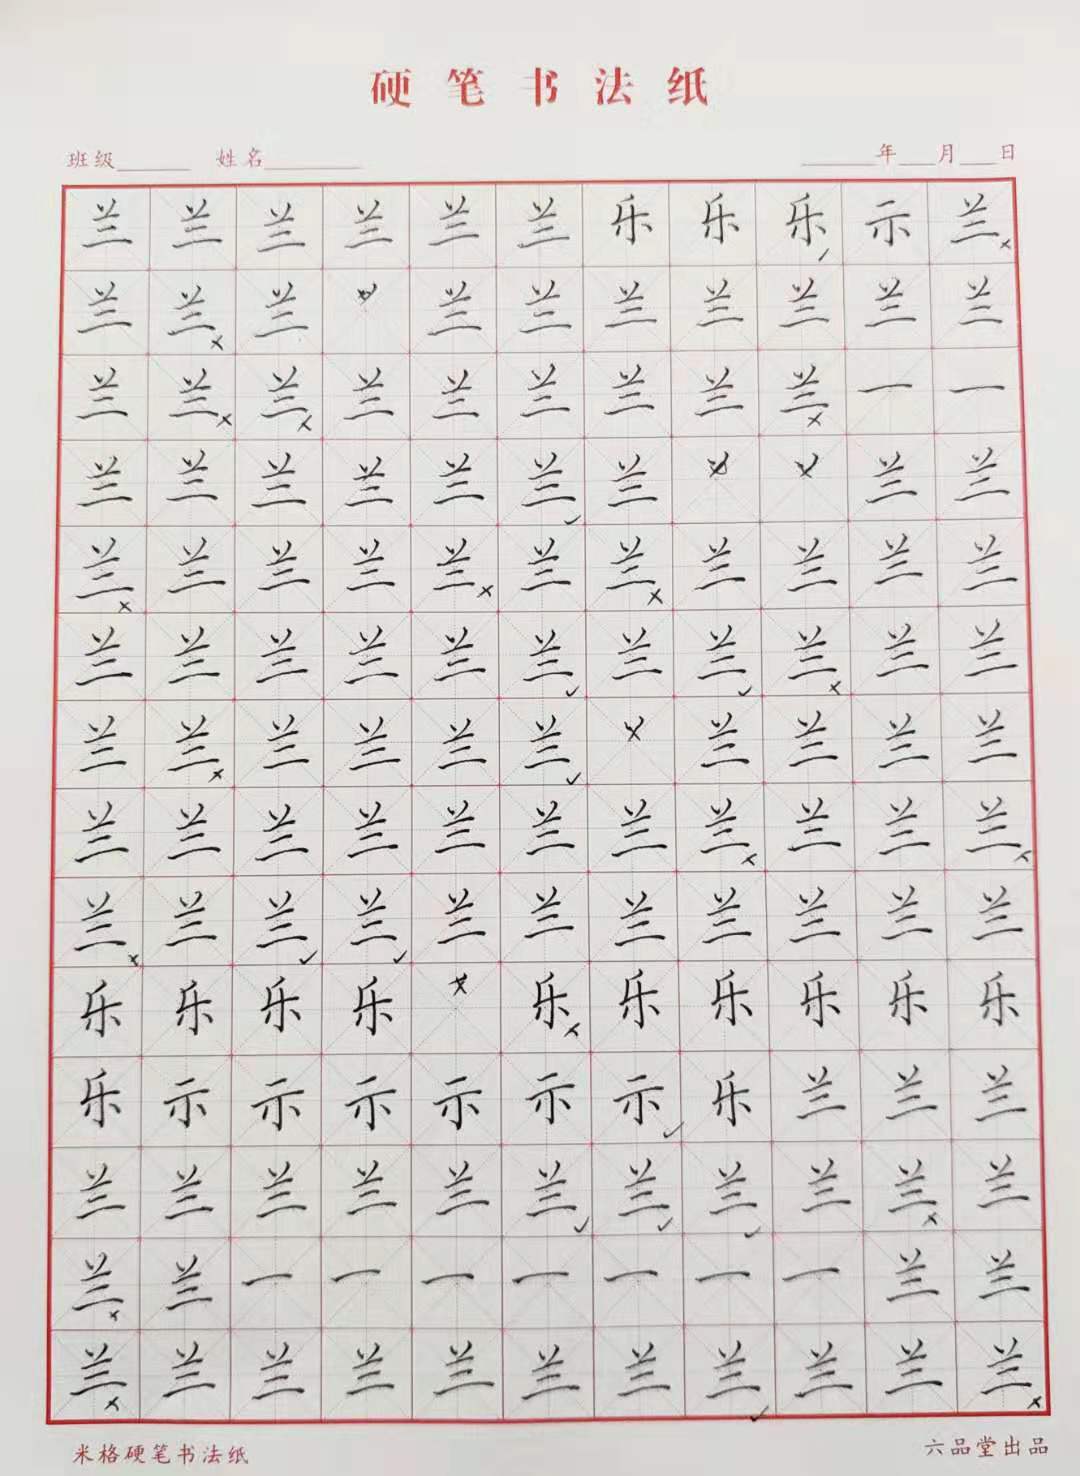 硬笔书法纸
班级______ 姓名______ ______年___月___日
兰兰兰兰兰兰乐乐乐示兰
兰兰兰兰兰兰兰兰兰兰
兰兰兰兰兰兰兰兰兰一一
兰兰兰兰兰兰兰兰兰
兰兰兰兰兰兰兰兰兰兰兰
兰兰兰兰兰兰兰兰兰兰兰
兰兰兰兰兰兰兰兰兰兰
兰兰兰兰兰兰兰兰兰兰兰
兰兰兰兰兰兰兰兰兰兰兰
乐乐乐乐乐乐乐乐乐乐
乐示示示示示示乐兰兰兰
兰兰兰兰兰兰兰兰兰兰兰
兰兰一一一一一一一兰兰
兰兰兰兰兰兰兰兰兰兰兰
米格硬笔书法纸 六品堂出品